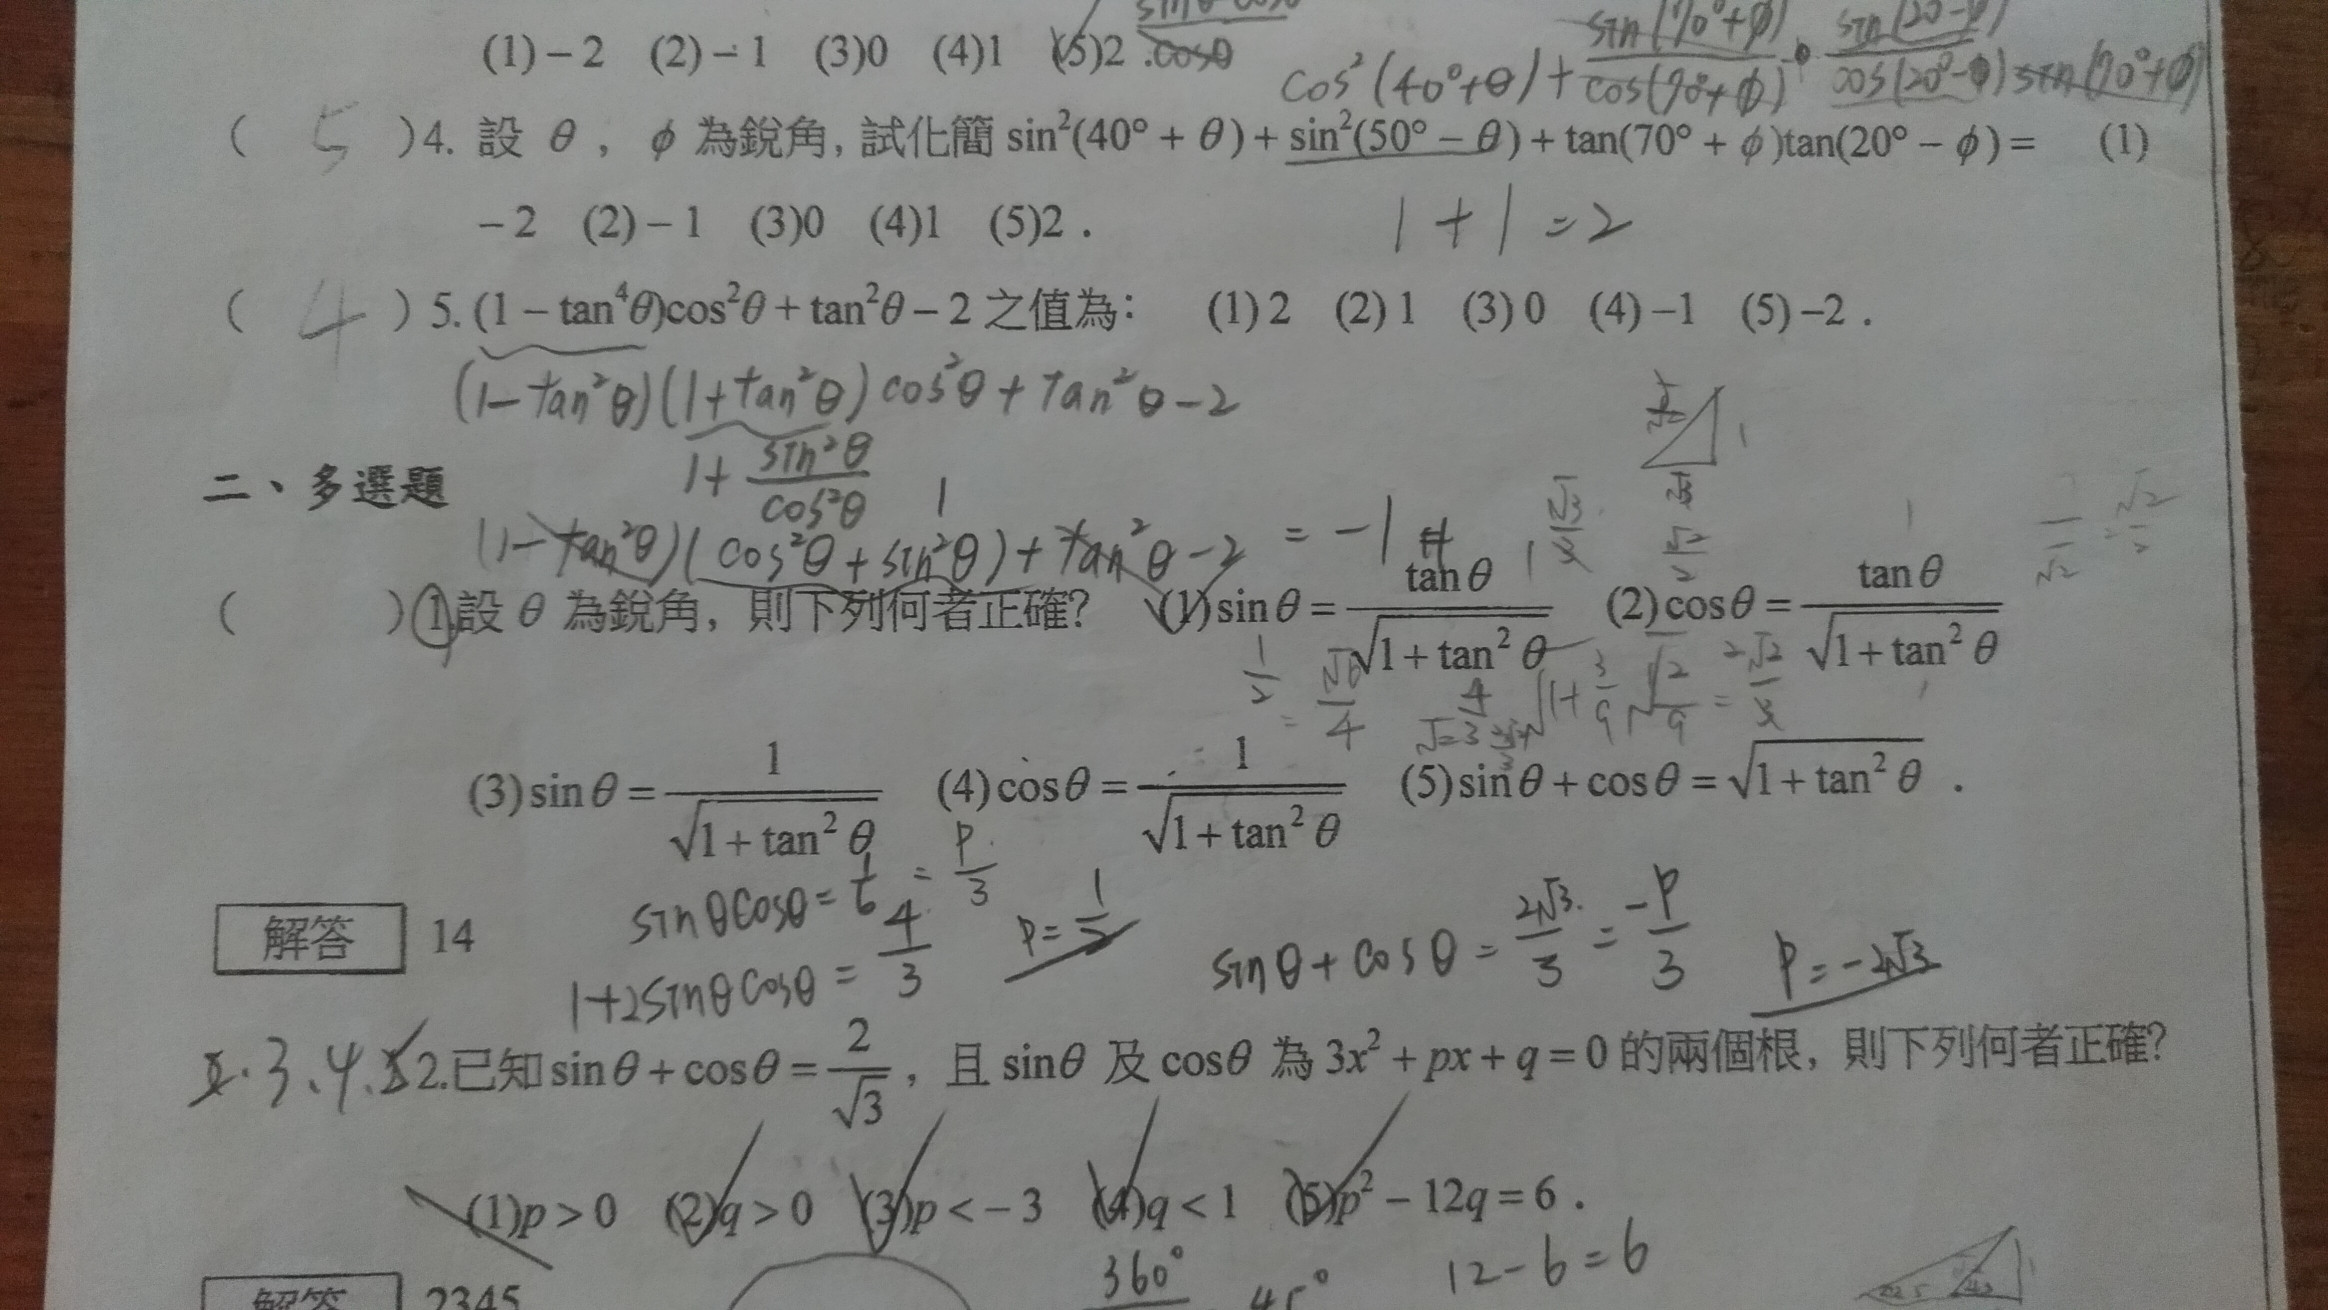 (1)－2 (2)－1 (3)0 (4)1 (5)2 .
cosθ
cos²(40°+θ)+ sin(70°+φ)/cos(70°+φ) · sin(20-φ)/cos(20°-φ) sin(70°+φ)
( 5 )4. 設 θ，φ 為銳角，試化簡 sin²(40° + θ) + sin²(50° − θ) + tan(70° + φ)tan(20° − φ) = (1)
−2 (2)−1 (3)0 (4)1 (5)2．
1 + 1 = 2
( 4 ) 5. (1 − tan⁴θ)cos²θ + tan²θ − 2 之值為： (1) 2 (2) 1 (3) 0 (4) −1 (5) −2．
(1−tan²θ)(1+tan²θ) cos²θ + tan²θ −2
1+ sin²θ/cos²θ
二、多選題
(1−tan²θ)(cos²θ + sin²θ) + tan²θ −2 = −1 #
1
( )1.設 θ 為銳角，則下列何者正確？ (1) sinθ = tanθ/√(1 + tan²θ) (2) cosθ = tanθ/√(1 + tan²θ)
(3) sinθ = 1/√(1 + tan²θ) (4) cosθ = 1/√(1 + tan²θ) (5) sinθ + cosθ = √(1 + tan²θ)．
sinθcosθ = 1/6 = p/3
解答 14
1+2sinθcosθ = 4/3
p = 1/2
sinθ + cosθ = 2√3/3 = −p/3
p = −2√3
3、4、5 2.已知 sinθ + cosθ = 2/√3，且 sinθ 及 cosθ 為 3x² + px + q = 0 的兩個根，則下列何者正確？
(1)p > 0 (2)q > 0 (3)p < −3 (4)q < 1 (5)p² − 12q = 6．
360°
45°
12−6=6
解答 2345